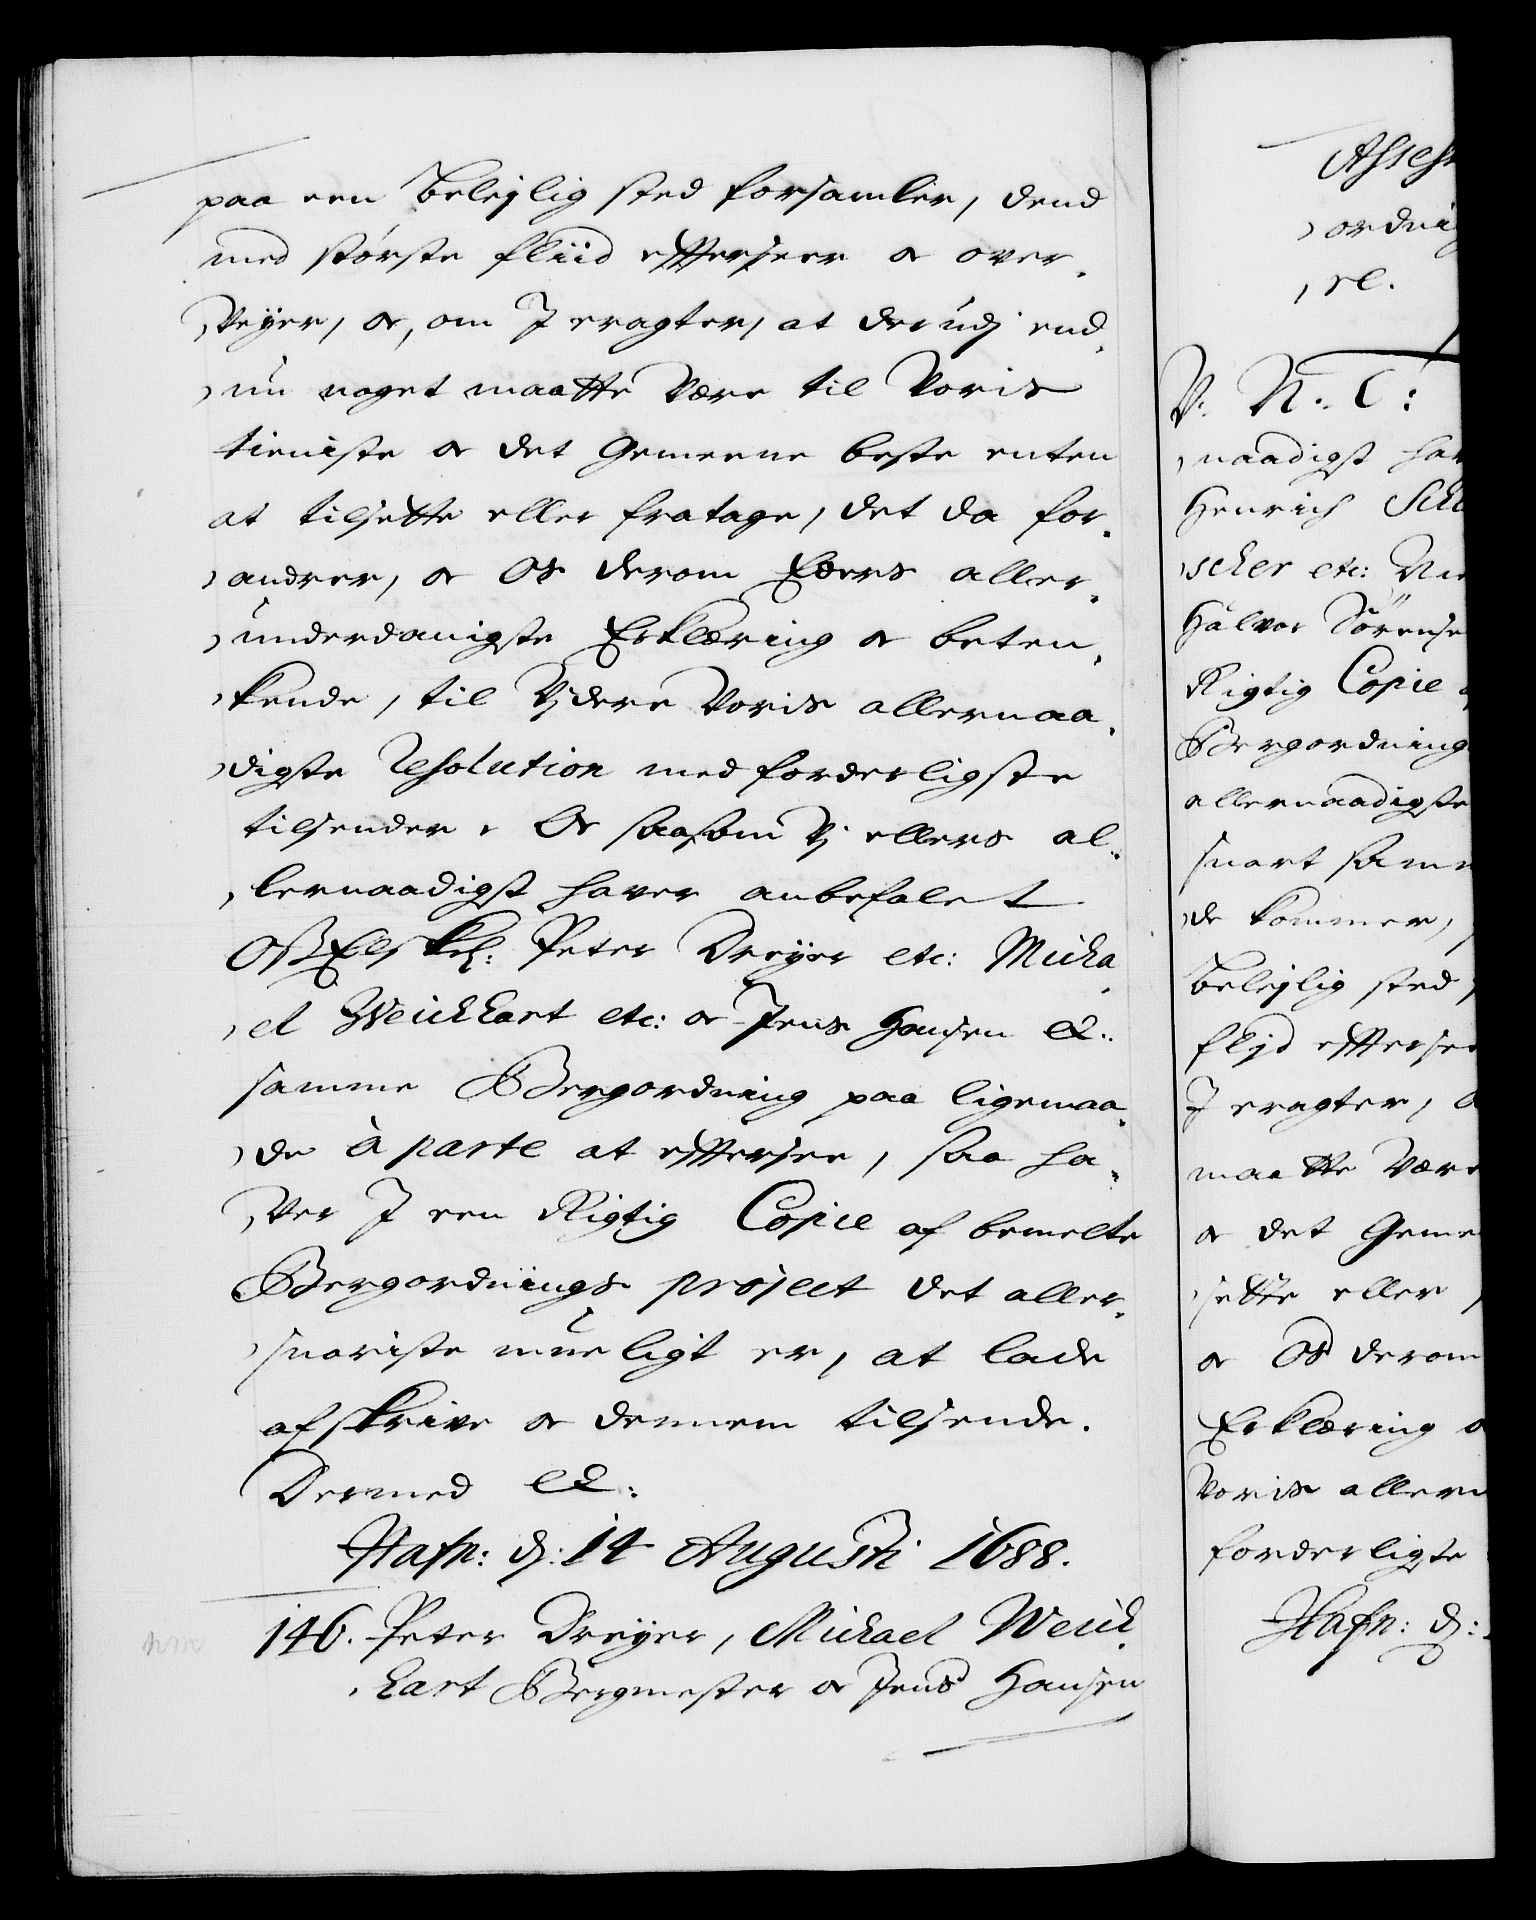 paa een beleilig sted forsamler, dend
med største fliid effterseer og over-
veyer, og, om I eragter, at derudj end-
nu noget maatte være til Voris
tieniste og det gemeene beste enten
at tilsette eller fratage, det da for-
andrer, og Os derom Eders aller-
underdanigste Erklæring og beten-
kende, til Videre Voris allernaa-
digste Resolution med forderligste
tilsender. Og saasom Vj ellers al-
lernaadigst haver anbefalet
Oß Elskel: Peter Dreyer etc: Micha-
el Weichhart etc: og Jens Hansen etc:
samme Bergordning paa ligemaa-
de à parte at effterser, saa ha-
ver I een Rigtig Copie af bemelte
Bergordnings project det aller-
snariste mueligt er, at lade
afskrive og dennem tilsende.
Dermed etc:
Hafn: d: 14 Augusti 1688.
146. Peter Dreyer, Michael Weich-
hart Bergmester og Jens Hansen
Assess
ordning
re.
V. N. T:
naadigst hav
Henrich Sch
scher etc: Ni
Halvor Sørense
Rigtig Copie
Bergordning
allernaadigste
snart samm
de kommer,
beleilig sted
flijd effterse
I eragter,
maatte være
og det Geme
sette eller
og Os derom
Erklæring
Voris allern
forderligte
Hafn: d: